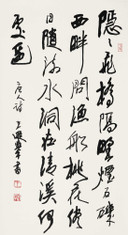 隱〻飛橋隔野煙石磯
西畔問漁船桃花盡
日隨流水洞在清溪何
處邊
唐人詩 王遐舉書